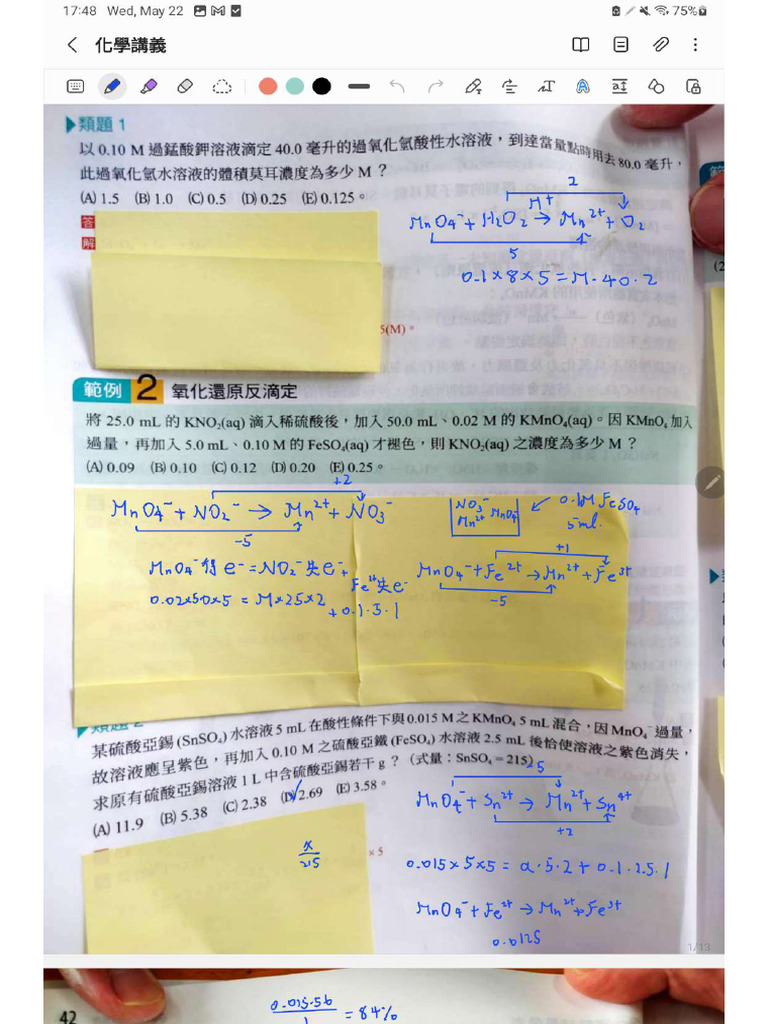 17:48 Wed, May 22
75%
化學講義
類題 1
以 0.10 M 過錳酸鉀溶液滴定 40.0 毫升的過氧化氫酸性水溶液，到達當量點時用去 80.0 毫升，
此過氧化氫水溶液的體積莫耳濃度為多少 M？
(A) 1.5 (B) 1.0 (C) 0.5 (D) 0.25 (E) 0.125。
答
解
2
H+
MnO4- + H2O2 → Mn2+ + O2
5
0.1×8×5=M·40·2
5(M)。
範例 2 氧化還原反滴定
將 25.0 mL 的 KNO2(aq) 滴入稀硫酸後，加入 50.0 mL、0.02 M 的 KMnO4(aq)。因 KMnO4 加入
過量，再加入 5.0 mL、0.10 M 的 FeSO4(aq) 才褪色，則 KNO2(aq) 之濃度為多少 M？
(A) 0.09 (B) 0.10 (C) 0.12 (D) 0.20 (E) 0.25。
+2
MnO4- + NO2- → Mn2+ + NO3-
-5
NO3-
Mn2+ MnO4-
0.1M FeSO4
5ml.
MnO4- 得 e- = NO2- 失 e- +
Fe2+ 失 e-
0.02×50×5 = M×25×2
+0.1·5·1
+1
MnO4- + Fe2+ → Mn2+ + Fe3+
-5
類題 2
某硫酸亞錫 (SnSO4) 水溶液 5 mL 在酸性條件下與 0.015 M 之 KMnO4 5 mL 混合，因 MnO4- 過量，
故溶液應呈紫色，再加入 0.10 M 之硫酸亞鐵 (FeSO4) 水溶液 2.5 mL 後恰使溶液之紫色消失，
求原有硫酸亞錫溶液 1 L 中含硫酸亞錫若干 g？(式量：SnSO4 = 215)
(A) 11.9 (B) 5.38 (C) 2.38 (D) 2.69 (E) 3.58。
MnO4- + Sn2+ → Mn2+ + Sn4+
+2
x/215
× 5
0.015×5×5 = a·5·2+0.1·2.5·1
MnO4- + Fe2+ → Mn2+ + Fe3+
0.0125
1/13
42
=84%